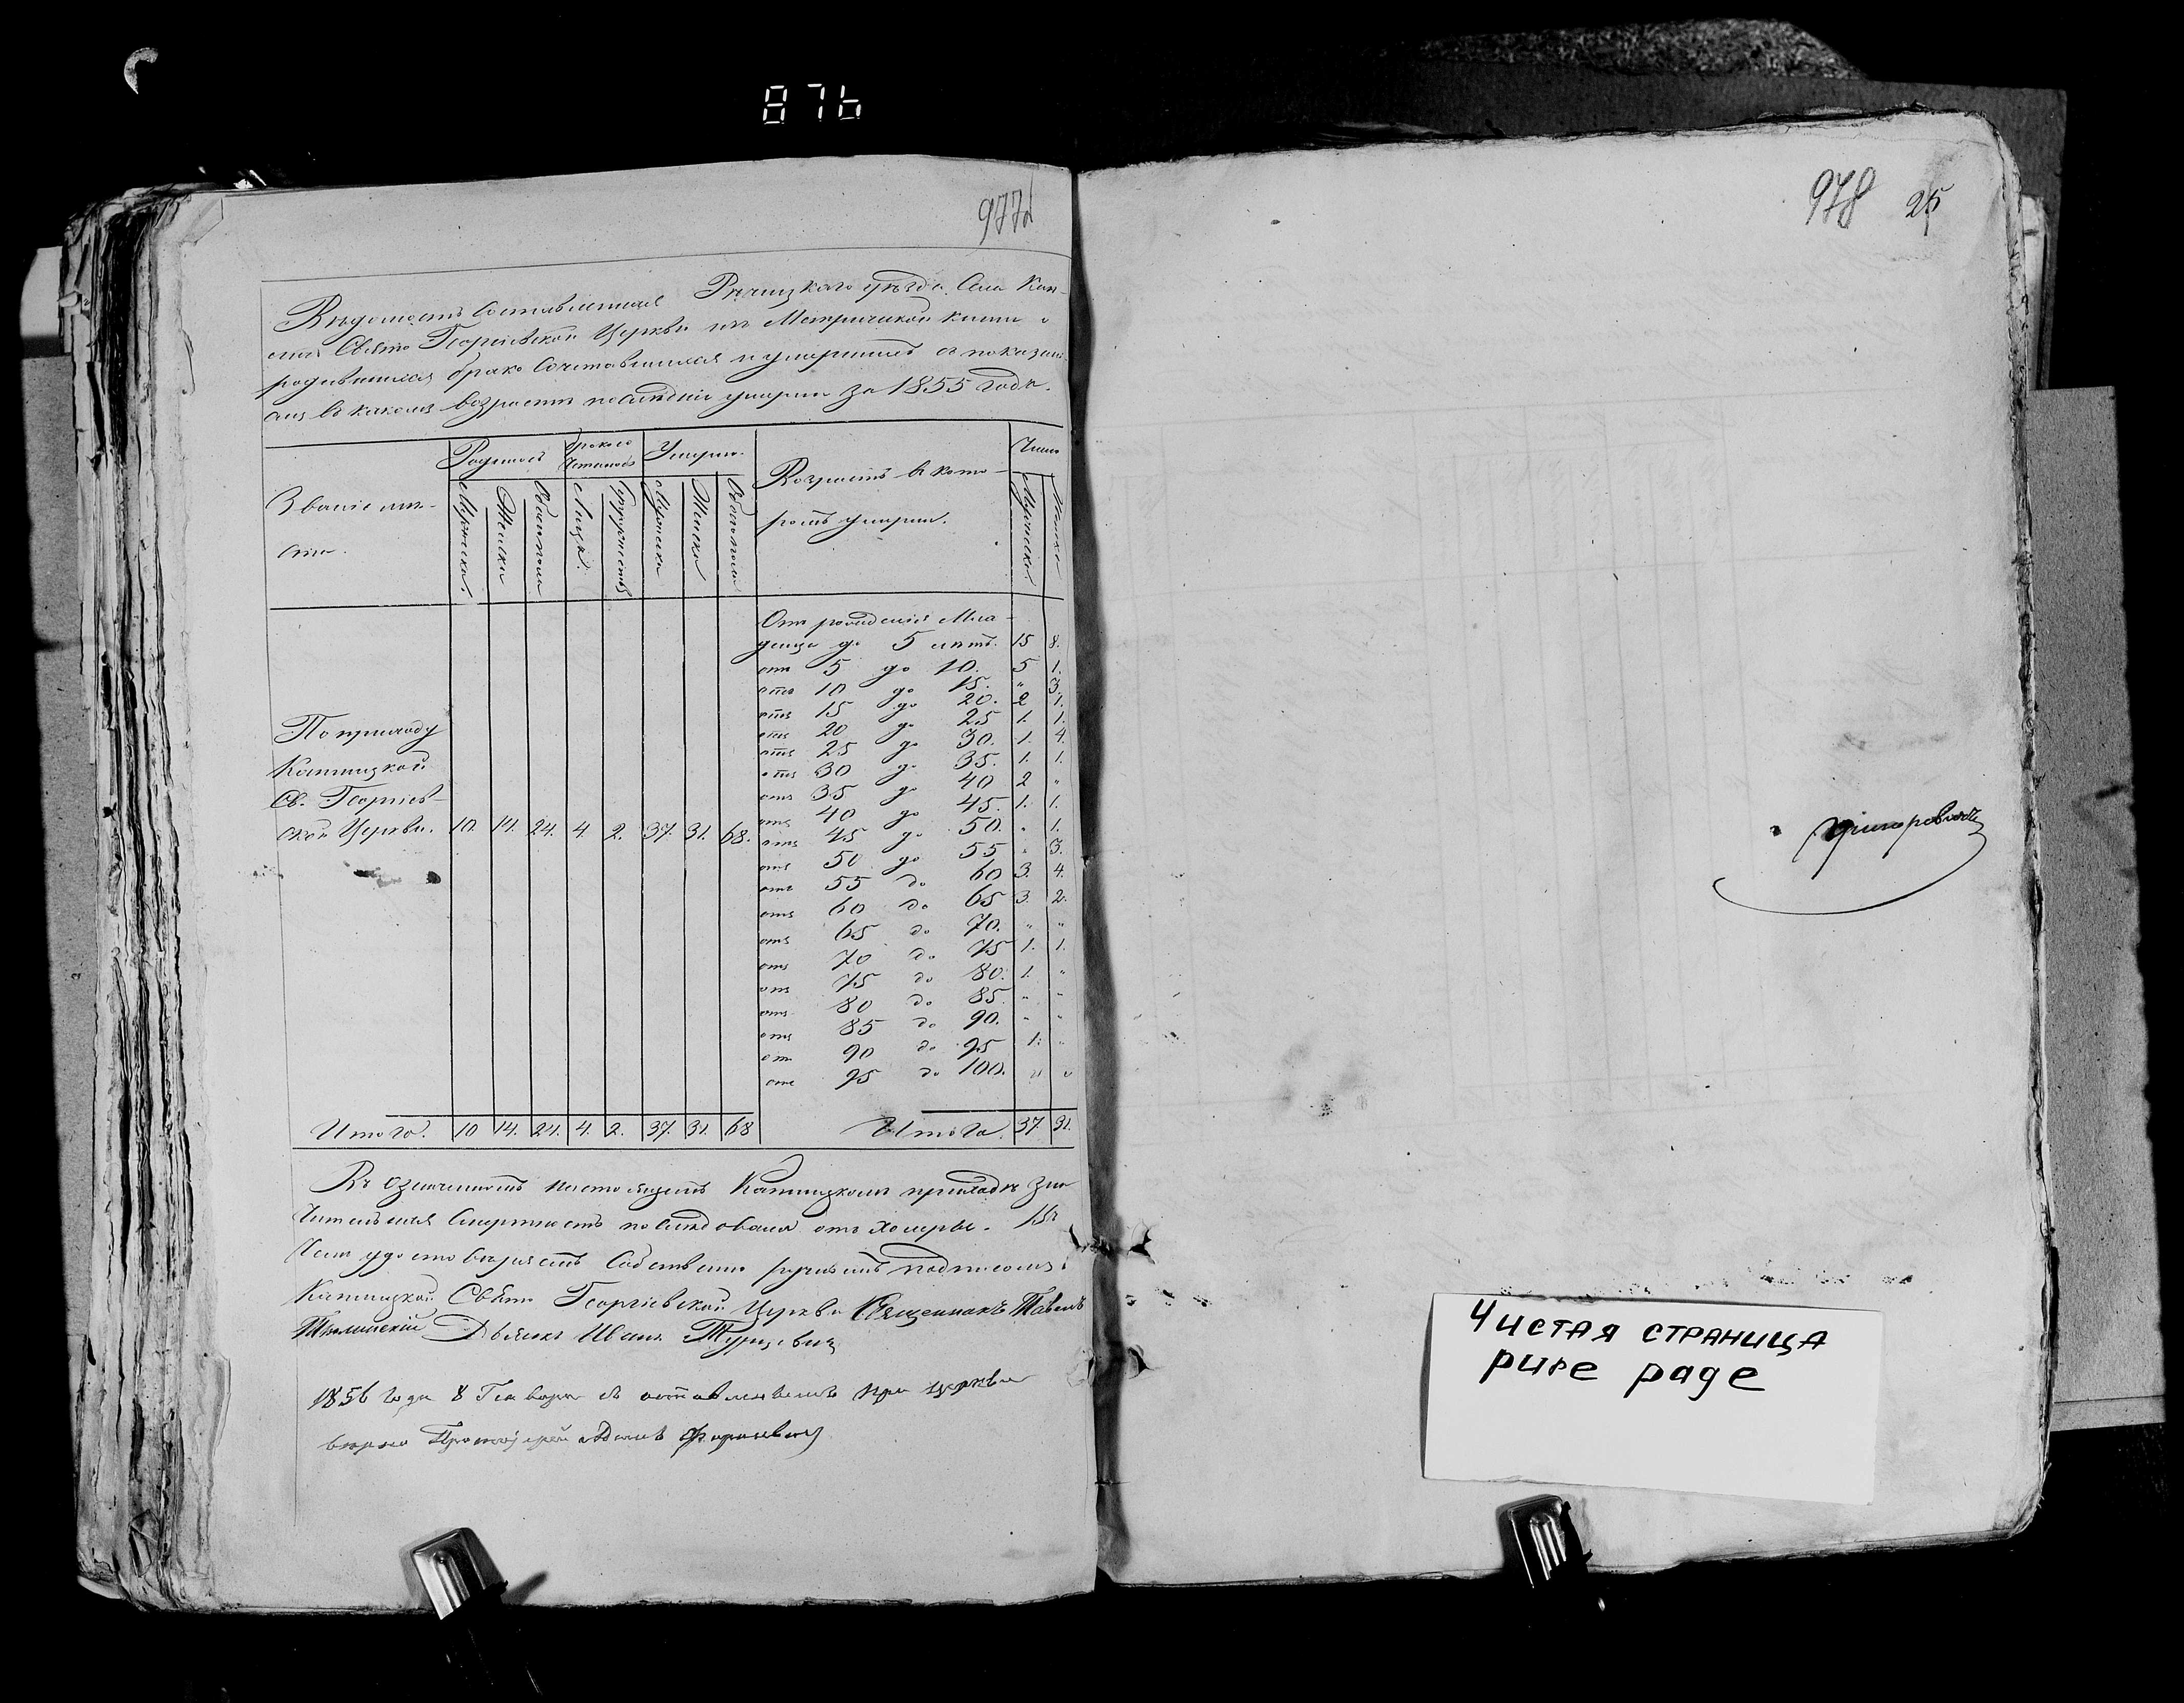 876
977
Вѣдомость Составленная Рѣчицкаго уѣзда Села Кап-
Свято Георгіевской Церкви изъ Метрической книги о
родившихся брако Сочетавшихся и умершихъ съ показані-
въ какомъ возрастѣ послѣдніе умерли за 1855 годъ.
Званіе мѣ-
ста.
Родилось
Умерло.
Возрастъ въ кото-
ромъ умерли.
Число
Мужеска.
Женска
Обоего пола
Лицъ.
Супружествъ
Мужеска
Женска
Обоего пола
Мужеска
Женска
Отъ рожденія Мла-
денца до 5 лѣтъ. 15 8.
отъ 5 до 10. 5 1.
отъ 10 до 15. " 3.
отъ 15 до 20. 2 1.
отъ 20 до 25 1. 1.
отъ 25 до 30. 1. 4.
отъ 30 до 35. 1. 1.
отъ 35 до 40 2 "
отъ 40 до 45. 1. 1.
отъ 45 до 50. " 1.
отъ 50 до 55 " 3.
отъ 55 до 60 3. 4.
отъ 60 до 65 3. 2.
отъ 65 до 70. " "
отъ 70 до 75 1. 1.
отъ 75 до 80. 1. "
отъ 80 до 85. " "
отъ 85 до 90. " "
отъ 90 до 95 1. "
отъ 95 до 100. " "
По приходу
Капицкой
Св. Георгіев-
ской Церкви. 10. 14. 24. 4 2. 37. 31. 68.
Итого. 10 14. 24. 4. 2. 37. 31. 68
Итого. 37. 31.
Въ означенномъ Капицкомъ приходѣ зна-
чительная Смертность послѣдовала отъ холеры. Въ
чемъ удостовѣряемъ Собственно ручнымъ подписомъ
Капицкой Свято Георгіевской Церкви Священникъ Павелъ
Дьячекъ Иванъ Турцевичъ
1856 года 8 Генваря при церкви
вѣрно Протоіерей
978 25
Григоровичъ
Чистая страница
pure page